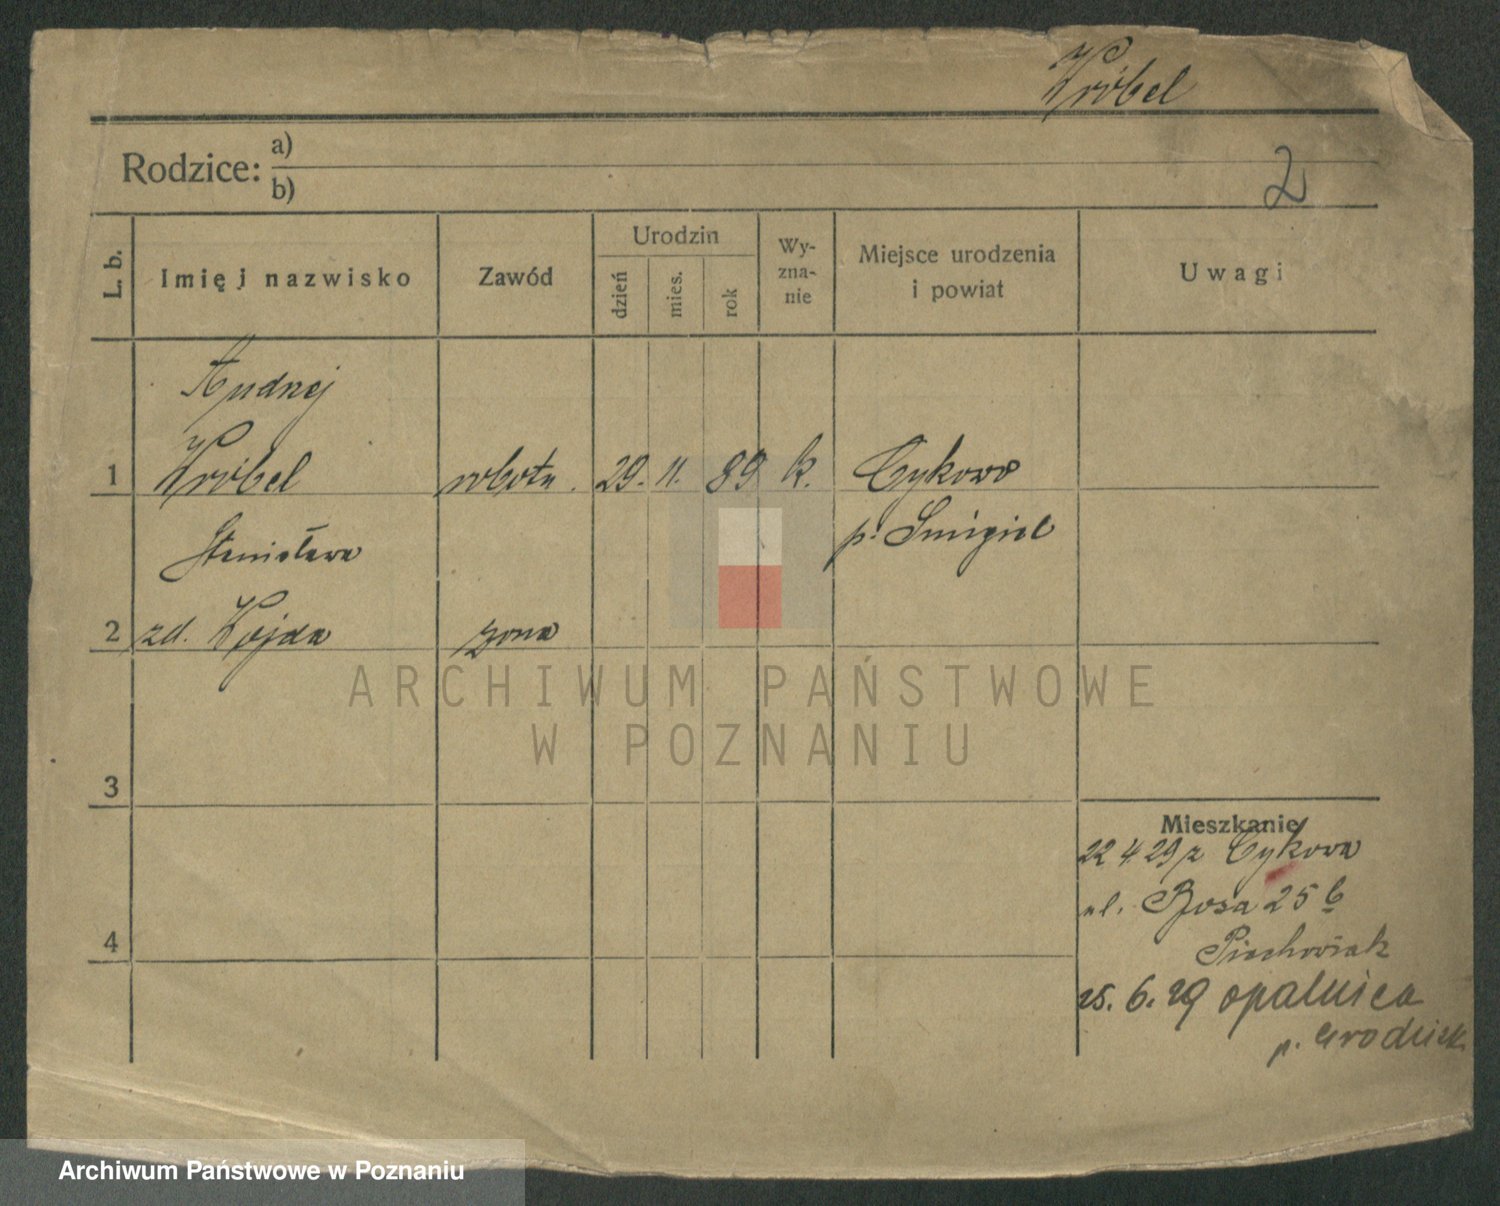 Wróbel
Rodzice: a)
b)
2
L. b.
Imię i nazwisko
Zawód
Urodzin
dzień
mies.
rok
Wy-
zna-
nie
Miejsce urodzenia
i powiat
Uwagi
Andrzej
1 Wróbel robotn. 29. 11. 89 k. Cykowo
p. Śmigiel
Stanisława
2 zd. Wojda żona
3
4
Mieszkanie
22 4 29 z Cykowa
ul. Bosa 25 b
Piechowiak
25. 6. 29 opalnica
p. Grodzisk
ARCHIWUM PAŃSTWOWE
W POZNANIU
Archiwum Państwowe w Poznaniu